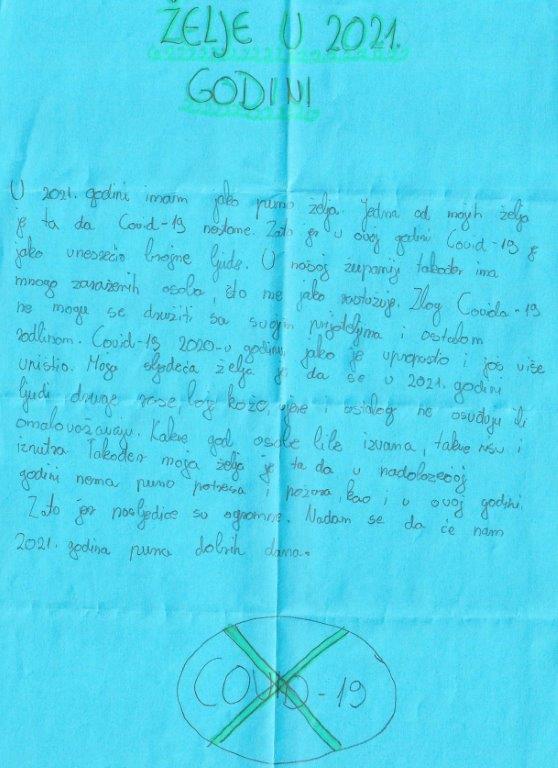 ŽELJE U 2021.
GODINI
U 2021. godini imam jako puno želja. Jedna od mojih želja
je ta da Covid-19 nestane. Zato jer u ovoj godini Covid-19 je
jako unesrećio brojne ljude. U našoj županiji također ima
mnogo zaraženih osoba, što me jako rastužuje. Zbog Covida-19
ne mogu se družiti sa svojim prijateljima i ostalom
rodbinom. Covid-19 2020-u godinu jako je upropastio i još više
uništio. Moja sljedeća želja je da se u 2021. godini
ljudi druge rase, boje kože, vjere i ostalog ne osuđuju ili
omalovažavaju. Kakve god osobe bile izvana, takve nisu i
iznutra. Također moja želja je ta da u nadolazećoj
godini nema puno potresa i požara kao i u ovoj godini.
Zato jer posljedice su ogromne. Nadam se da će nam
2021. godina puna dobrih dana.
COVID-19